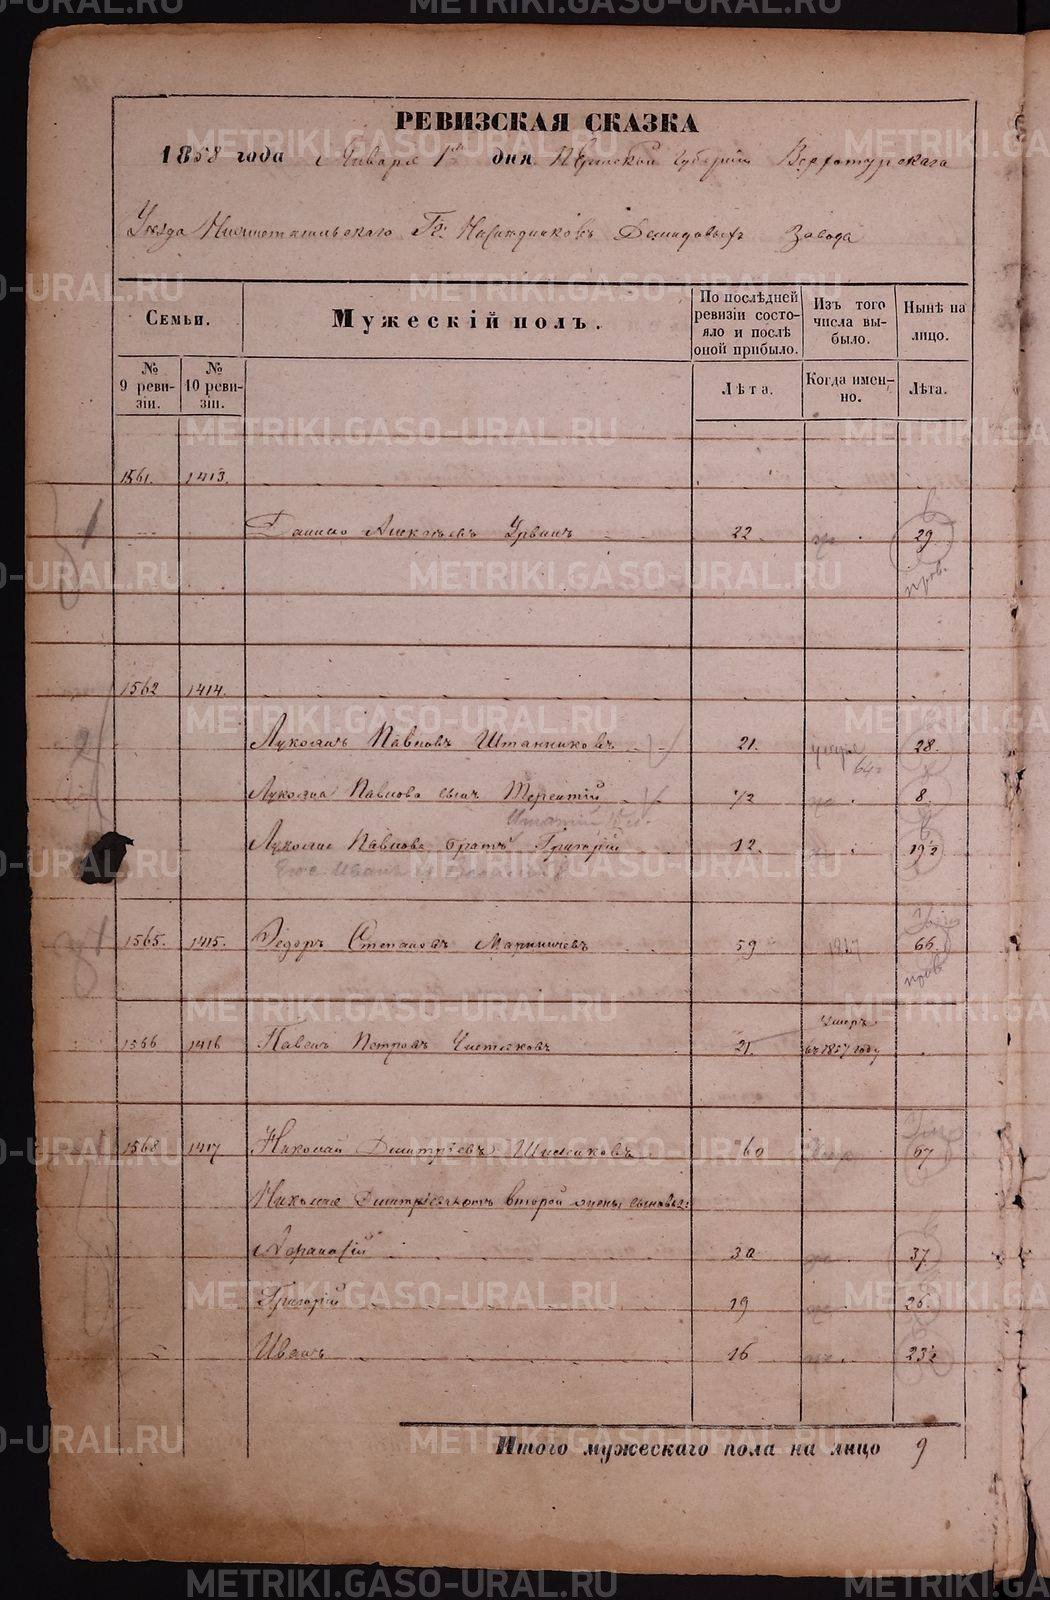 РЕВИЗСКАЯ СКАЗКА
1858 года Января 1го дня Пермской Губернии Верхотурскаго
Уезда Нижнетагильскаго Гг. Наследников Демидовых Завода
Семьи.
Мужескій полъ.
По послѣдней ревизіи состояло и послѣ оной прибыло.
Изъ того числа выбыло.
Нынѣ на лицо.
№ 9 ревизіи.
№ 10 ревизіи.
Лѣта.
Когда именно.
Лѣта.
1561. 1413.
1
Данило Алексѣевъ 22 29
пров.
1562 1414.
2
Лукоянъ Павловъ Штанниковъ 21. 28.
64
Лукояна Павлова сынъ Терентій 1/2 8.
Лукояна Павлова братъ Григорій 12. 19 1/2
1565. 1415. Ѳедоръ Степановъ 59 66.
пров
1566 1416 Павелъ Петровъ Чистяковъ 21. Умеръ въ 1857 году
1568 1417 Николай Дмитріевъ 60 67
Николая Дмитріева отъ второй жены сыновья:
Афанасій 30 37
Григорій 19 26.
Иванъ 16 23 1/2
Итого мужескаго пола на лицо 9
METRIKI.GASO-URAL.RU